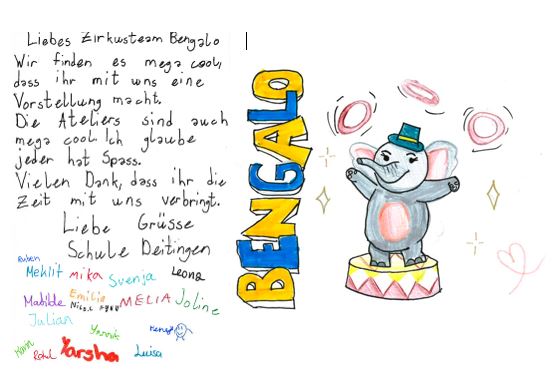 Liebes Zirkusteam Bengalo
Wir finden es mega cool,
dass ihr mit uns eine
Vorstellung macht.
Die Ateliers sind auch
mega cool. Ich glaube
jeder hat Spass.
Vielen Dank, dass ihr die
Zeit mit uns verbringt.
Liebe Grüsse
Schule Deitingen
Ruben
Mehlit mika Svenja Leona
Matilde Emilia MELIA Joline
Julian
Yannik
Yarsha Luisa
BENGALO